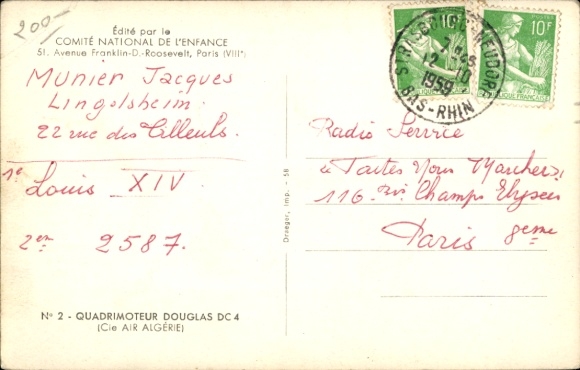 200-
Édité par le
COMITÉ NATIONAL DE L'ENFANCE
51, Avenue Franklin-D.-Roosevelt, Paris (VIIIe)
Munier Jacques
Lingolsheim.
22 rue des Tilleuls.
1e Louis XIV
2em 2587.
N° 2 - QUADRIMOTEUR DOUGLAS DC 4
(Cie AIR ALGÉRIE)
Draeger, Imp. - 58
STRASBOURG-NEUDORF
12-10
1959
BAS-RHIN
POSTES
10F
RÉPUBLIQUE FRANÇAISE
Radio Service
"Faites Vous Marcher"
116 Champs Elysées
Paris 8eme